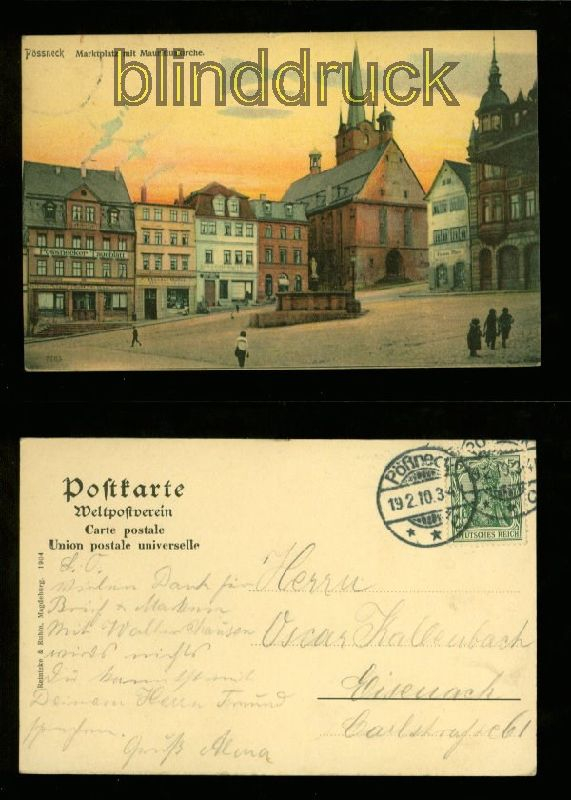 blinddruck
Pössneck Marktplatz mit Mauritiuskirche.
7103
Postkarte
Weltpostverein
Carte postale
Union postale universelle
Reinicke & Rubin, Magdeburg. 1904
Pößneck
19.2.10.3-4
DEUTSCHES REICH
L. O.
Vielen Dank für
Brief & Marken
Mit Waltershausen
wirds nichts
Du kannst mit
Deinem Herrn Freund
sprechen.
Gruß Alma
Herrn
Oscar Kallenbach
Eisenach
Carlstraße 61